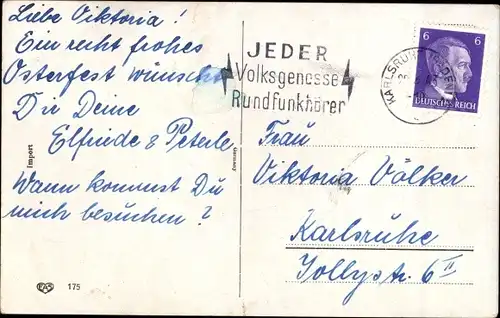 Liebe Viktoria!
Ein recht frohes
Osterfest wünscht
Dir Deine
Elfriede & Peterle.
Wann kommst Du
mich besuchen?
Import
EAS 175
Germany
JEDER
Volksgenosse
Rundfunkhörer
KARLSRUHE
6 6
DEUTSCHES REICH
Frau
Viktoria Völker
Karlsruhe
Jollystr. 6 II